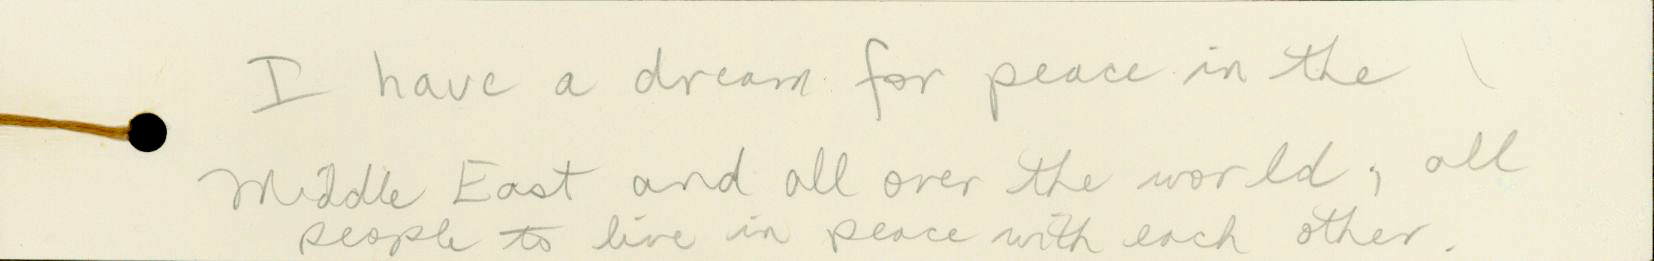 I have a dream for peace in the
Middle East and all over the world, all
people to live in peace with each other.